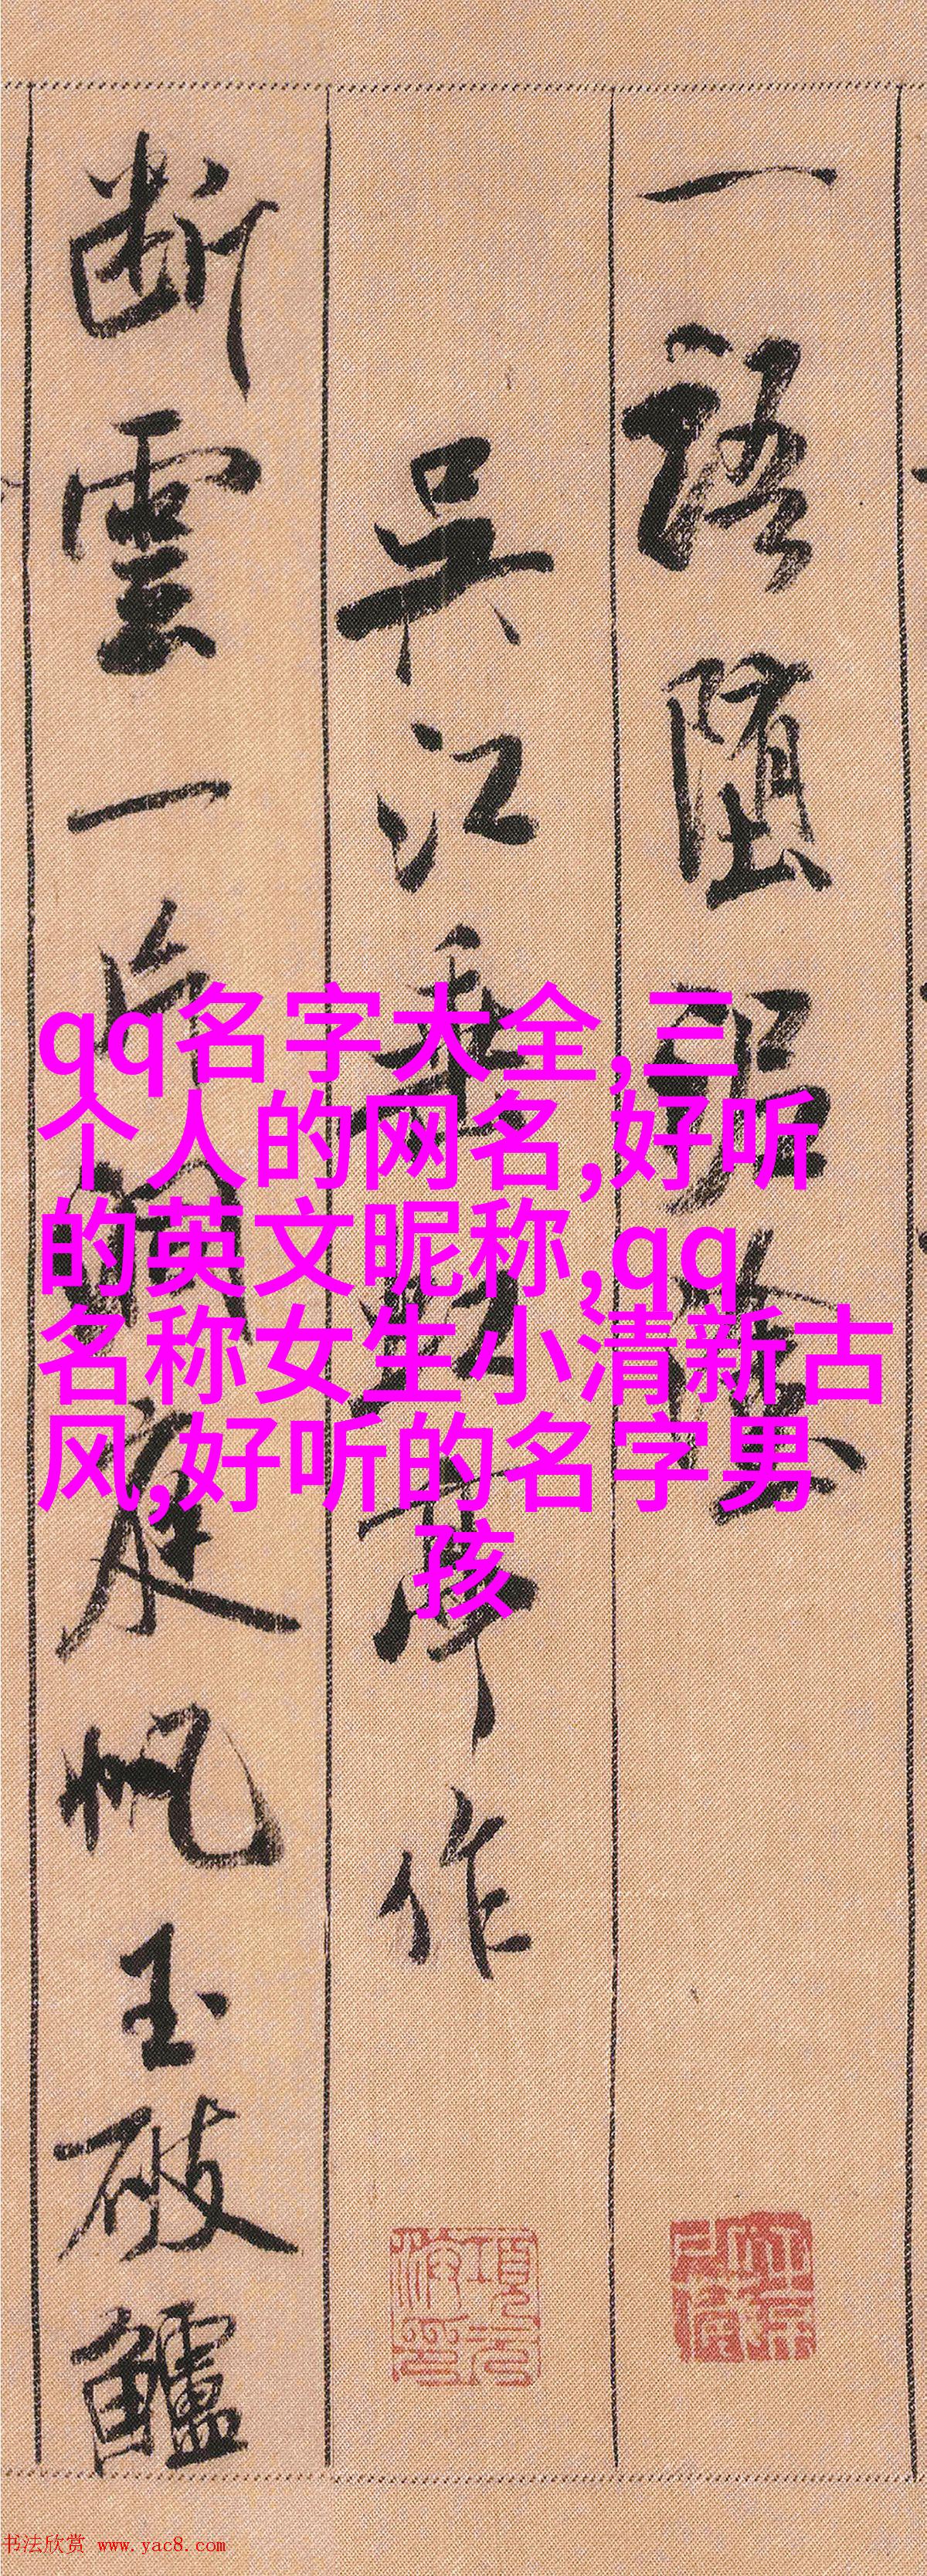 一語墮泥塗
吳江垂虹亭作
斷雲一片洞庭帆玉破鱸
qq名字大全,三
个人的网名,好听
的英文昵称,qq
名称女生小清新古
风,好听的名字男
孩
书法欣赏 www.yac8.com